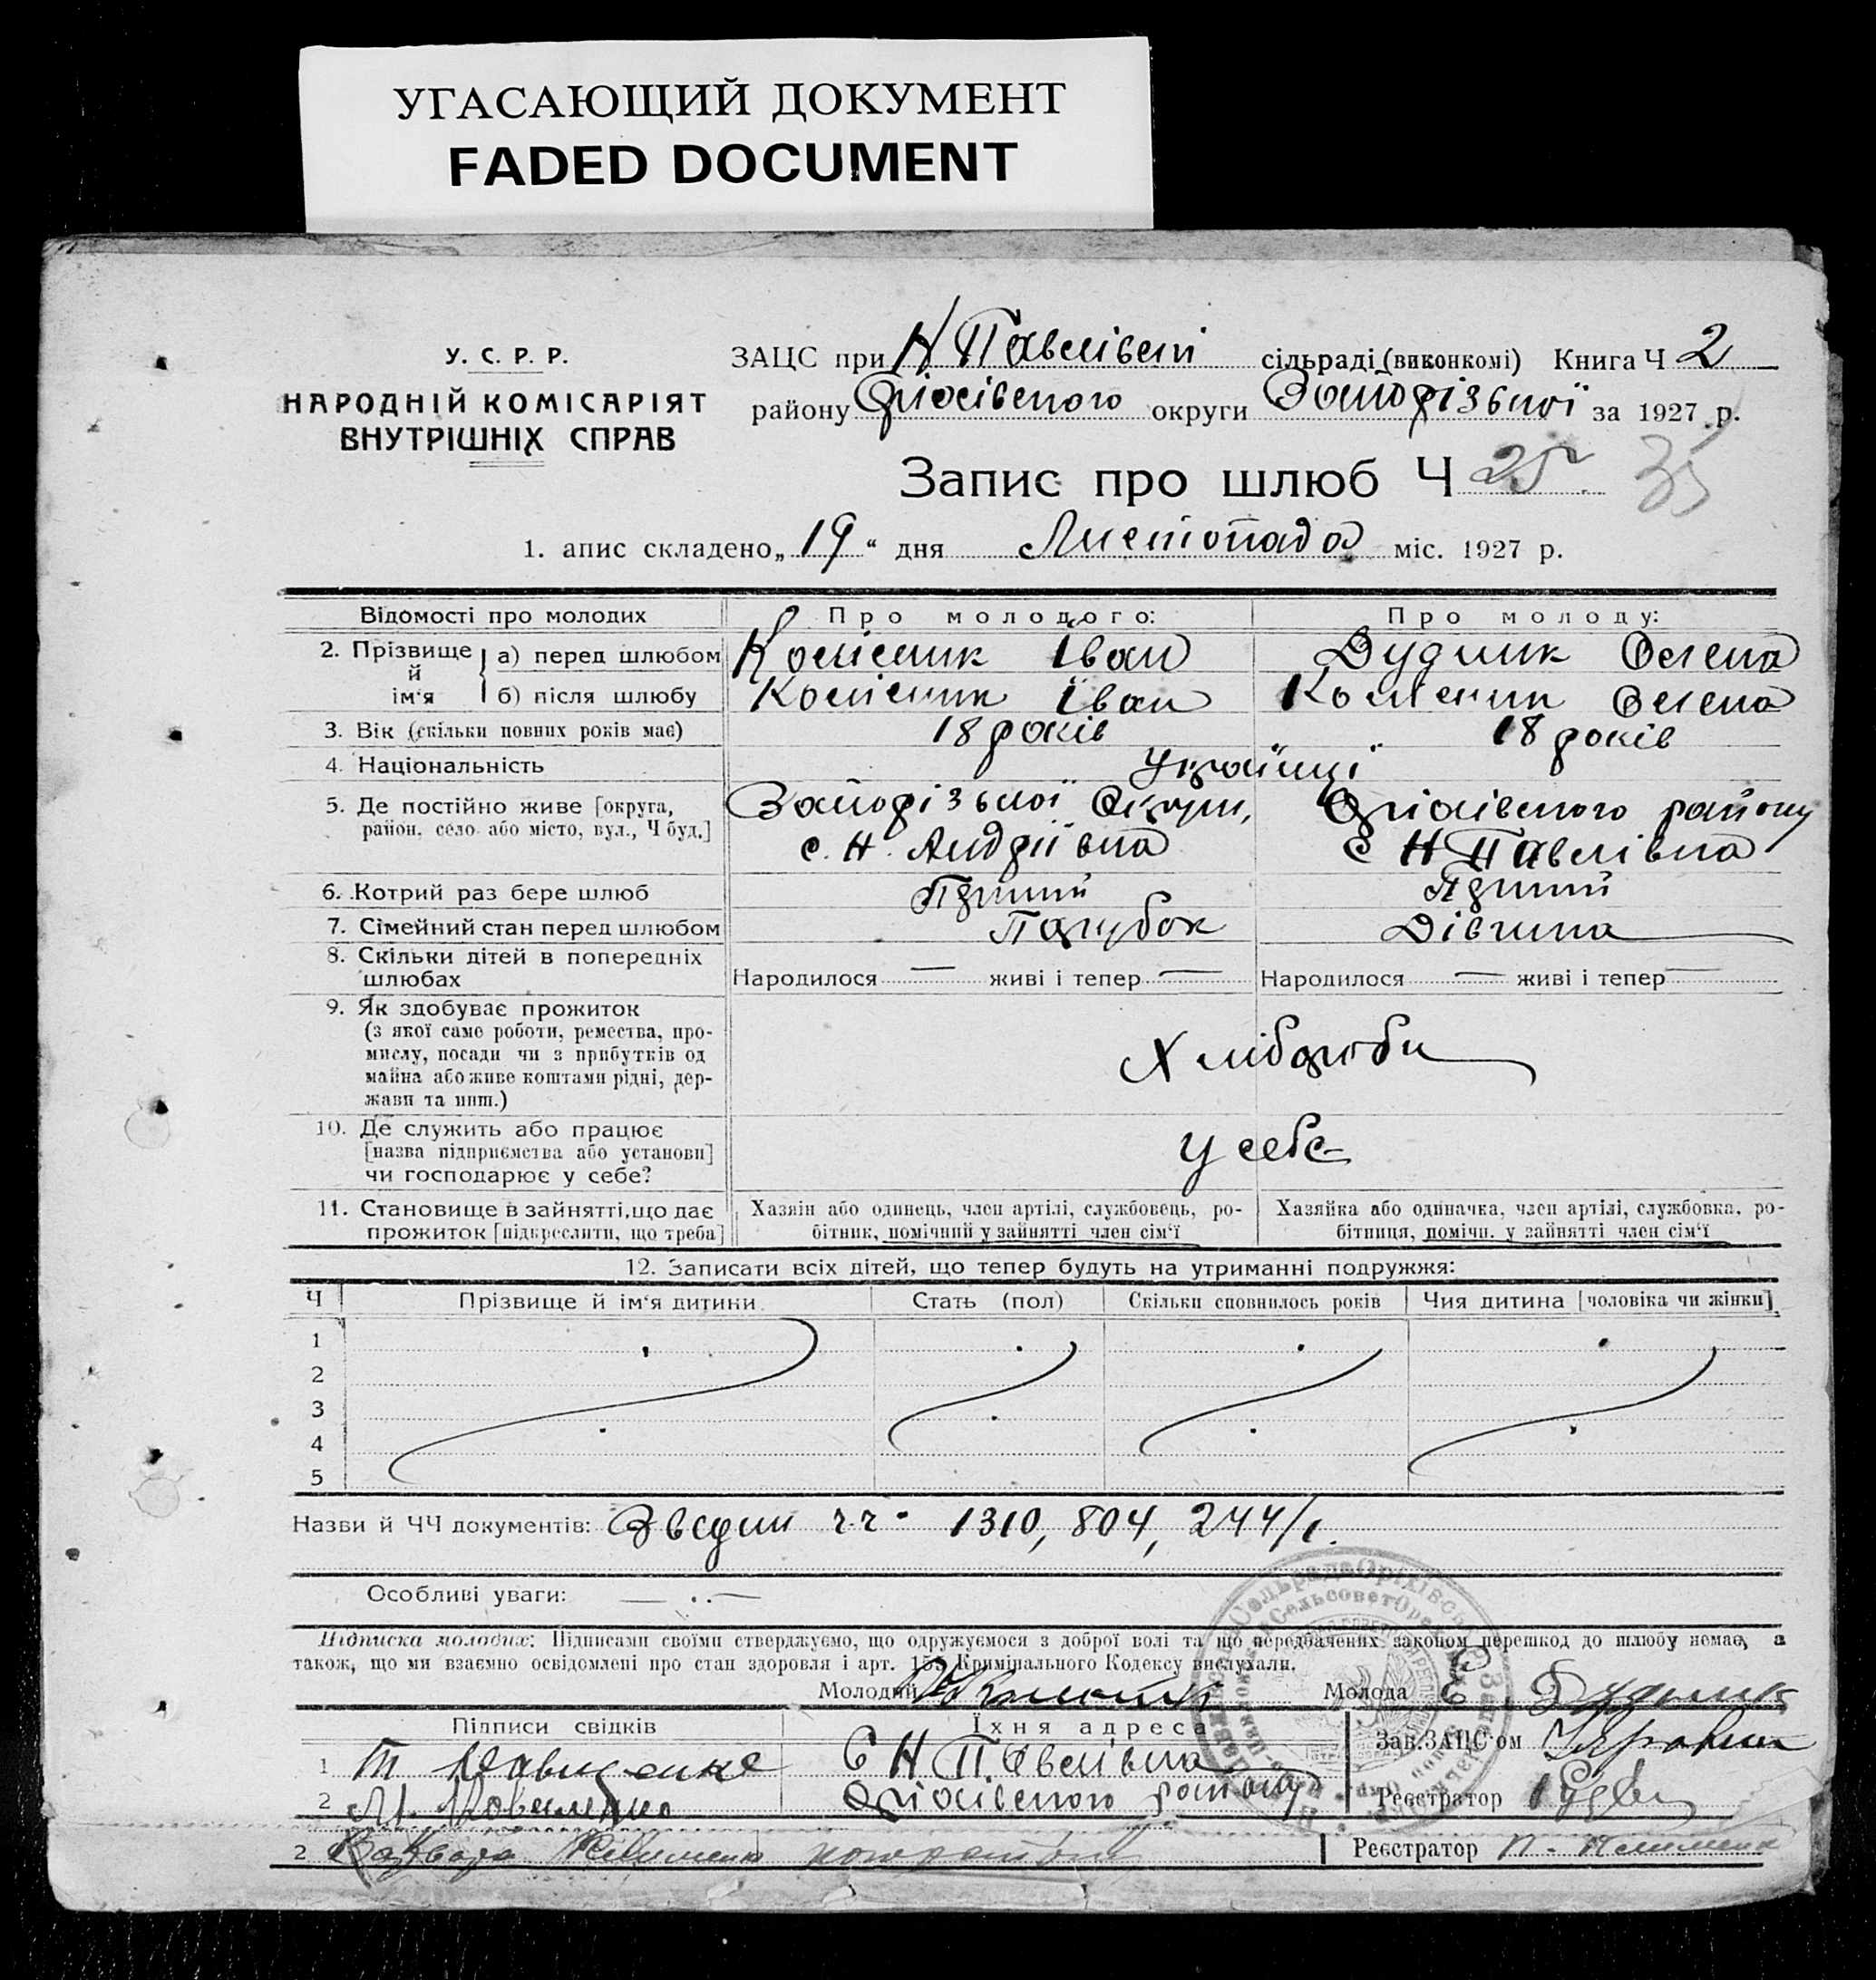 УГАСАЮЩИЙ ДОКУМЕНТ
FADED DOCUMENT
У. С. Р. Р.
НАРОДНІЙ КОМІСАРІЯТ
ВНУТРІШНІХ СПРАВ
ЗАЦС при Н Павлівскі сільраді (виконкомі) Книга Ч 2
району Оріхівського округи Запорізької за 1927 р.
Запис про шлюб Ч 25 35
1. апис складено „ 19 “ дня Листопада міс. 1927 р.
Відомості про молодих Про молодого: Про молоду:
2. Прізвище й ім‘я
а) перед шлюбом Колісник Іван Дудник Олена
б) після шлюбу Колісник Іван Колісник Олена
3. Вік (скільки повних років має) 18 років 18 років
4. Національність Українці
5. Де постійно живе [округа, Запорізької Округи, Оріхівського району
район, село або місто, вул., Ч буд.] с. Н. Андріївка с Н Павлівка
6. Котрий раз бере шлюб Перший Перший
7. Сімейний стан перед шлюбом Парубок Дівчина
8. Скільки дітей в попередніх
шлюбах Народилося — живі і тепер — Народилося — живі і тепер —
9. Як здобуває прожиток
(з якої саме роботи, ремества, про-
мислу, посади чи з прибутків од
майна або живе коштами рідні, дер-
жави та инш.) Хлібороби
10. Де служить або працює
[назва підприємства або установи] У себе
чи господарює у себе?
11. Становище в зайнятті, що дає Хазяїн або одинець, член артілі, службовець, ро- Хазяйка або одиначка, член артілі, службовка, ро-
прожиток [підкреслити, що треба] бітник, помічний у зайнятті член сім‘ї бітниця, помічн. у зайнятті член сім‘ї
12. Записати всіх дітей, що тепер будуть на утриманні подружжя:
Ч Прізвище й ім‘я дитини Стать (пол) Скільки сповнилось років Чия дитина [чоловіка чи жінки]
1
2
3
4
5
Назви й ЧЧ документів: ч.ч. 1310, 804, 244/1.
Особливі уваги: —
Підписка молодих: Підписами своїми стверджуємо, що одружуємося з доброї волі та що передбачених законом перешкод до шлюбу немає, а
також, що ми взаємно освідомлені про стан здоровля і арт. 155 Кримінального Кодексу вислухали.
Молодий Молода Е. Дудник
Підписи свідків Їхня адреса Зав. ЗАЦС‘ом
1 С Н Павлівка
2 М. Оріхівського району Реєстратор
2 Реєстратор